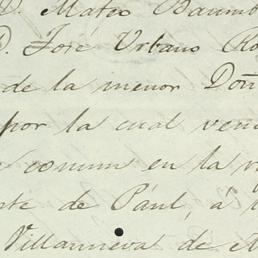 D. Mateo
D. Jose Urbano Ro
de la menor Doñ
por la cual ven
comun en la v
te de Paul, á
Villanueva de